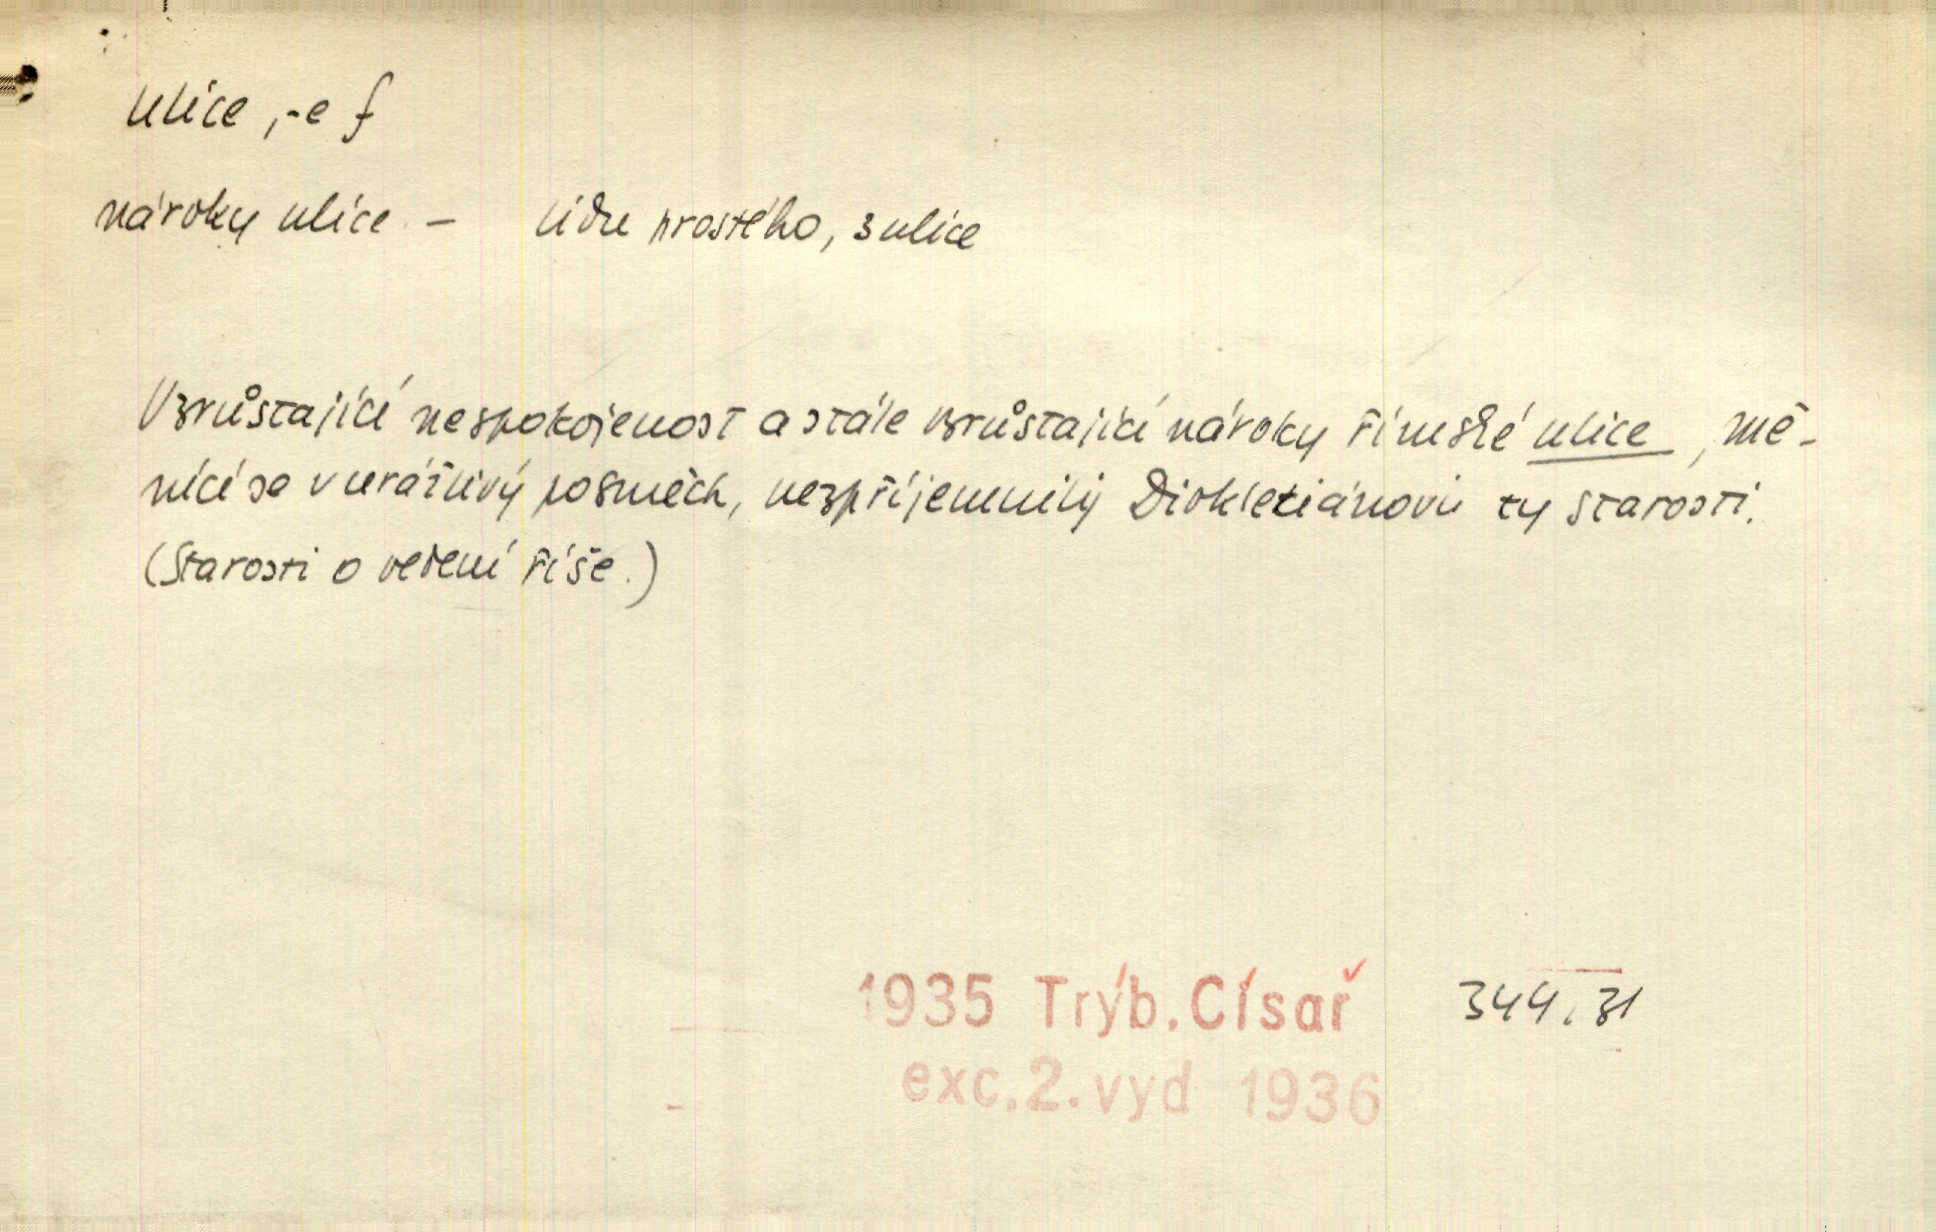 ulice, -e f
nároky ulice – lidu prostého, z ulice
Vzrůstající nespokojenost a stále vzrůstající nároky římské ulice, mě-
nící se v urážlivý posměch, nezpříjemnily Diokletiánovi ty starosti.
(Starosti o vedení říše.)
1935 Trýb. Císař 344, 31
exc. 2. vyd 1936